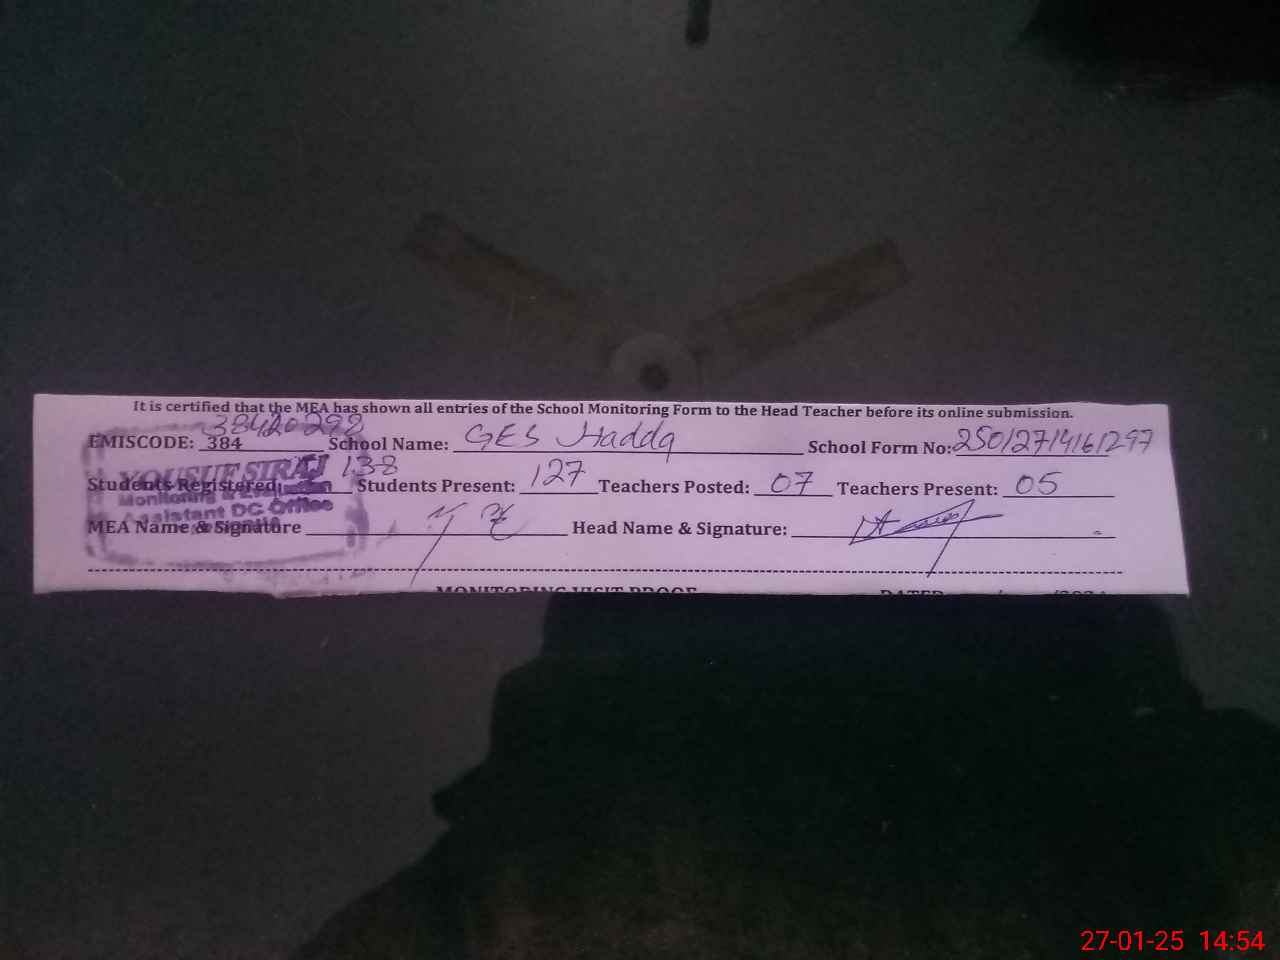 It is certified that the MEA has shown all entries of the School Monitoring Form to the Head Teacher before its online submission.
38420298
EMISCODE: 384 School Name: GES Hadda School Form No: 25012714161297
YOUSUF SIRAJ 138
Students Registered: Students Present: 127 Teachers Posted: 07 Teachers Present: 05
Monitoring & Evaluation
Assistant DC Office
MEA Name & Signature Head Name & Signature:
MONITORING VISIT PROOF DATED
27-01-25 14:54